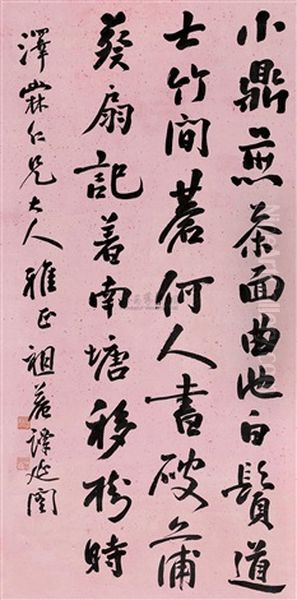 小鼎煎茶面曲池白鬚道
士竹間碁何人書破蒲
葵扇記着南塘移樹時
澤霖仁兄大人雅正祖菴譚延闓